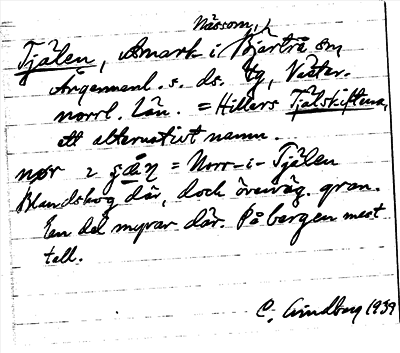 Nässom,
Tjälen, åmark i Bjärtrå sn
Ångermanl. s. ds. tg, Väster-
norrl. län. = Hillers Tjälskiftena,
ett alternativt namn.
= Norr-i-Tjälen
Blandskog där, doch överväg. gran.
En del myrar där. På bergen mest
tall.
C. Lindberg 1939